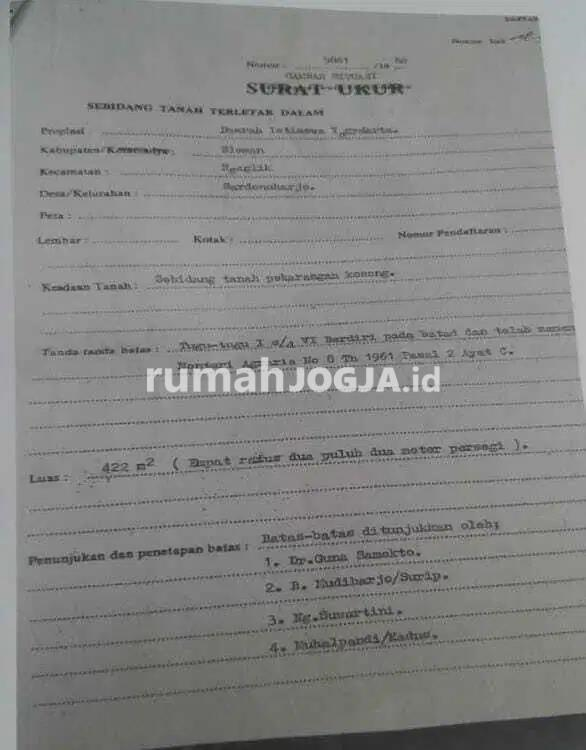 DAFTAR
Nomor hak
Nomor : 5061 /19 80
GAMBAR SITUASI
SURAT UKUR
SEBIDANG TANAH TERLETAK DALAM
Propinsi : Daerah Istimewa Yogyakarta.
Kabupaten/Kotamadya : Sleman
Kecamatan : Ngaglik
Desa/Kelurahan : Sardonoharjo.
Peta :
Lembar : Kotak : Nomor Pendaftaran :
Keadaan Tanah : Sebidang tanah pekarangan kosong.
Tanda-tanda batas : Tugu-tugu I s/d VI Berdiri pada batas dan telah
Menteri Agraria No 8 Th 1961 Pasal 2 Ayat C.
rumahJOGJA.id
Luas : 422 m2 ( Empat ratus dua puluh dua meter persegi ).
Penunjukan dan penetapan batas : Batas-batas ditunjukkan oleh;
1. Dr.Guna Samekto.
2. B. Mudiharjo/Surip.
3. Ng.Suwartini.
4. Muhalpandi/Kadus.